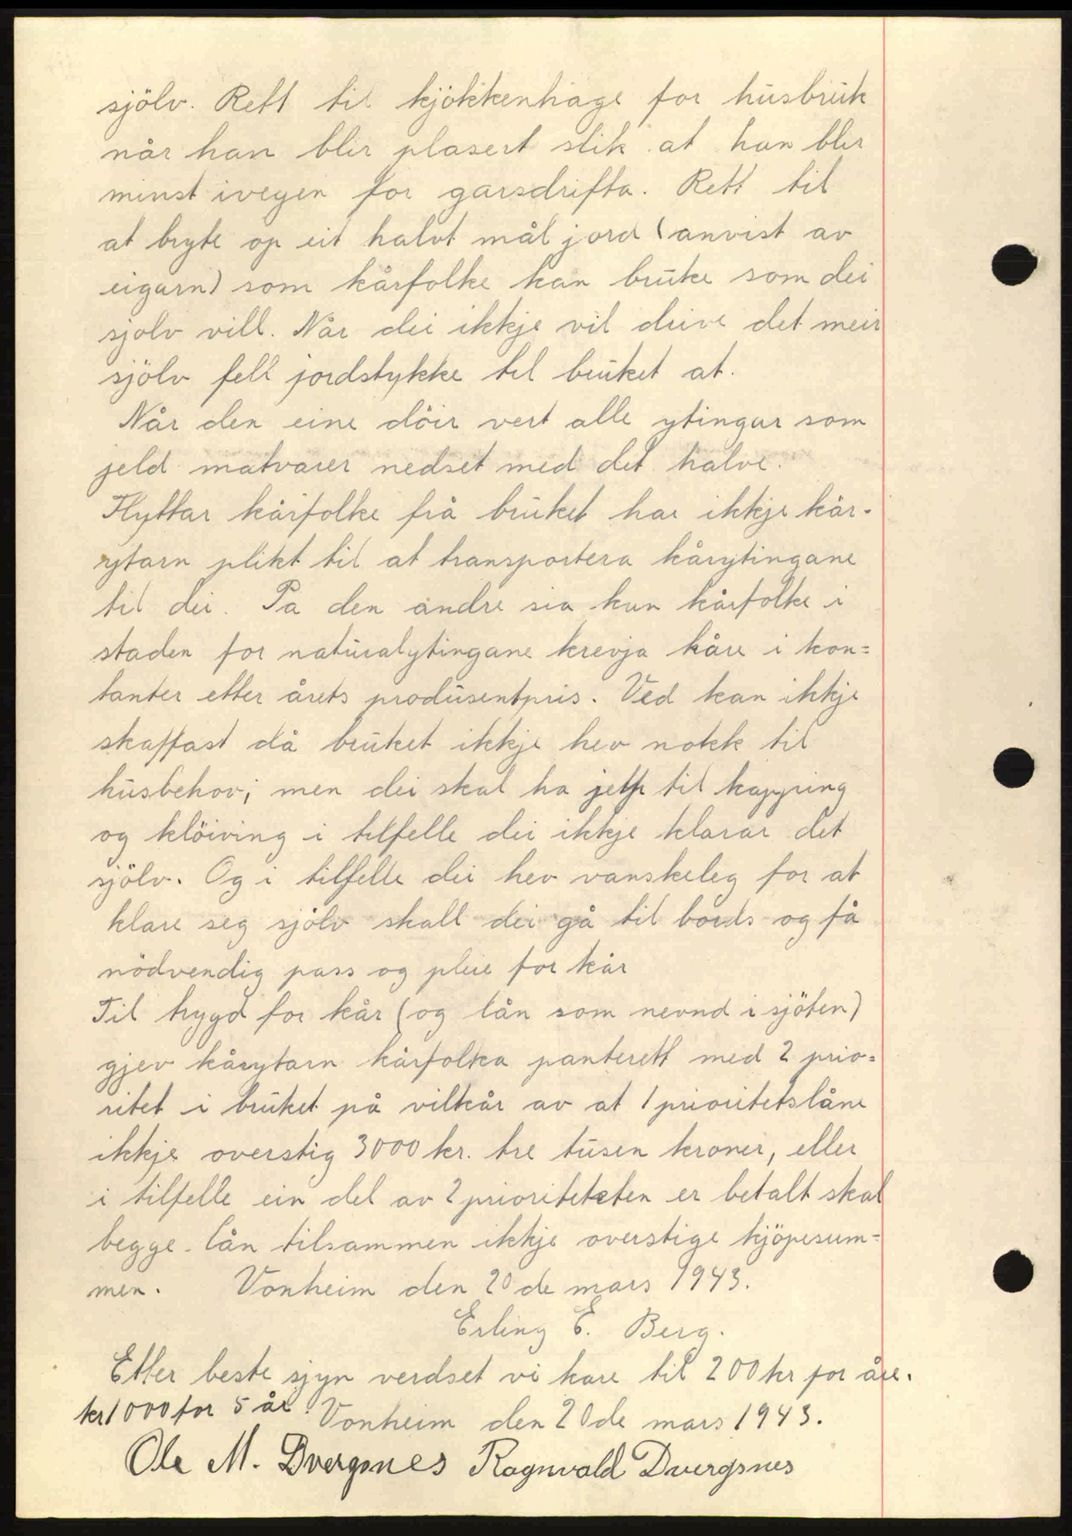 sjölv. Rett til kjökkenhage for husbruk
når han blir plasert slik at han blir
minst ivegen for garsdrifta. Rett til
at bryte op eit halvt mål jord (anvist av
eigarn) som kårfolke kan bruke som dei
sjolv vill. Når dei ikkje vil drive det meir
sjölv fell jordstykke til bruket at.
Når den eine döir vert alle ytingar som
jeld matvarer nedset med det halve.
Flyttar kårfolke frå bruket har ikkje kår-
ytarn plikt til at transportera kårytingane
til dei. Pa den andre sia kan kårfolke i
staden for naturalytingane krevja kåre i kon=
tanter etter årets produsentpris. Ved kan ikkje
skaffast då bruket ikkje hev nokk til
husbehov; men dei skal ha jelp til kapping
og klöiving i tilfelle dei ikkje klarar det
sjölv. Og i tilfelle dei hev vanskeleg for at
klare seg sjölv skall dei gå til bords og få
nödvendig pass og pleie for kår
Til trygd for kår (og lån som nevnd i sjöten)
gjev kårytarn kårfolka panterett med 2 prio=
ritet i bruket på vilkår av at 1 prioritetslåne
ikkje overstig 3000 kr. tre tusen kroner, eller
i tilfelle ein del av 2 prioriteteten er betalt skal
begge lån tilsammen ikkje overstige kjöpesum=
men. Vonheim den 20 de mars 1943.
Erling E. Berg.
Etter beste sjyn verdset vi kare til 200 kr for åre.
kr 1000 for 5 år. Vonheim den 20 de mars 1943.
Ole M. Dvergsnes Ragnvald Dvergsnes